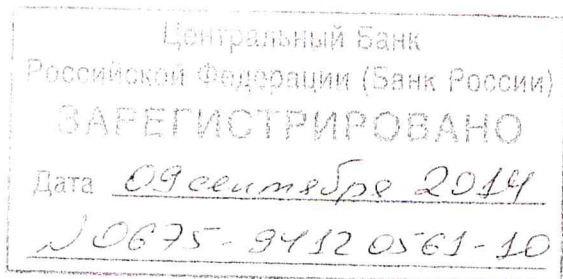 Центральный Банк
Российской Федерации (Банк России)
ЗАРЕГИСТРИРОВАНО
Дата 09 сентября 2014
N 0675-94120561-10